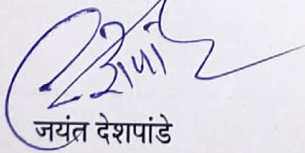 जयंत देशपांडे